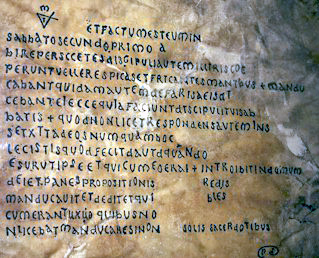 ETFACTUMESTEUMIN
SABBATOSECUNDOPRIMO A
BIREPERSCCETESDISCIPULIAUTEMILLIRISCOE
PERUNTVELLERESPICASETFRICANTESMANIBUS + MANDU
CABANTQUIDAMAUTEMDEFARISAEISAT
CEBANTEIECCEQUIAFACIUNTDISCIPULITUISAB
BATIS + QUODNONLICETRESPONDENSAUTEMINS
SETXTTADEOSNUMQUAMHOC
LECISTISQUODFECITDAUTDQUANDO
ESURUTIPSEETQUICUMEOERAT + INTROIBITINDOMUM
DEIETPANESPROPOSITIONIS REDIS
MANDUCAUITETDEDITETQUI BLES
CUMERANTUXUO QUIBUSNO
NLICEBATMANDUCARESINON SOLIS SACERDOTIBUS